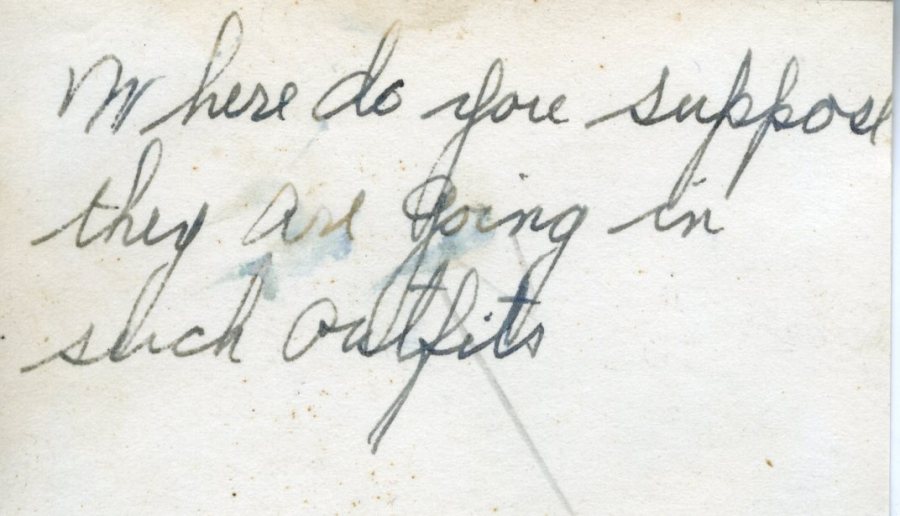 Where do you suppose
they are going in
such outfits